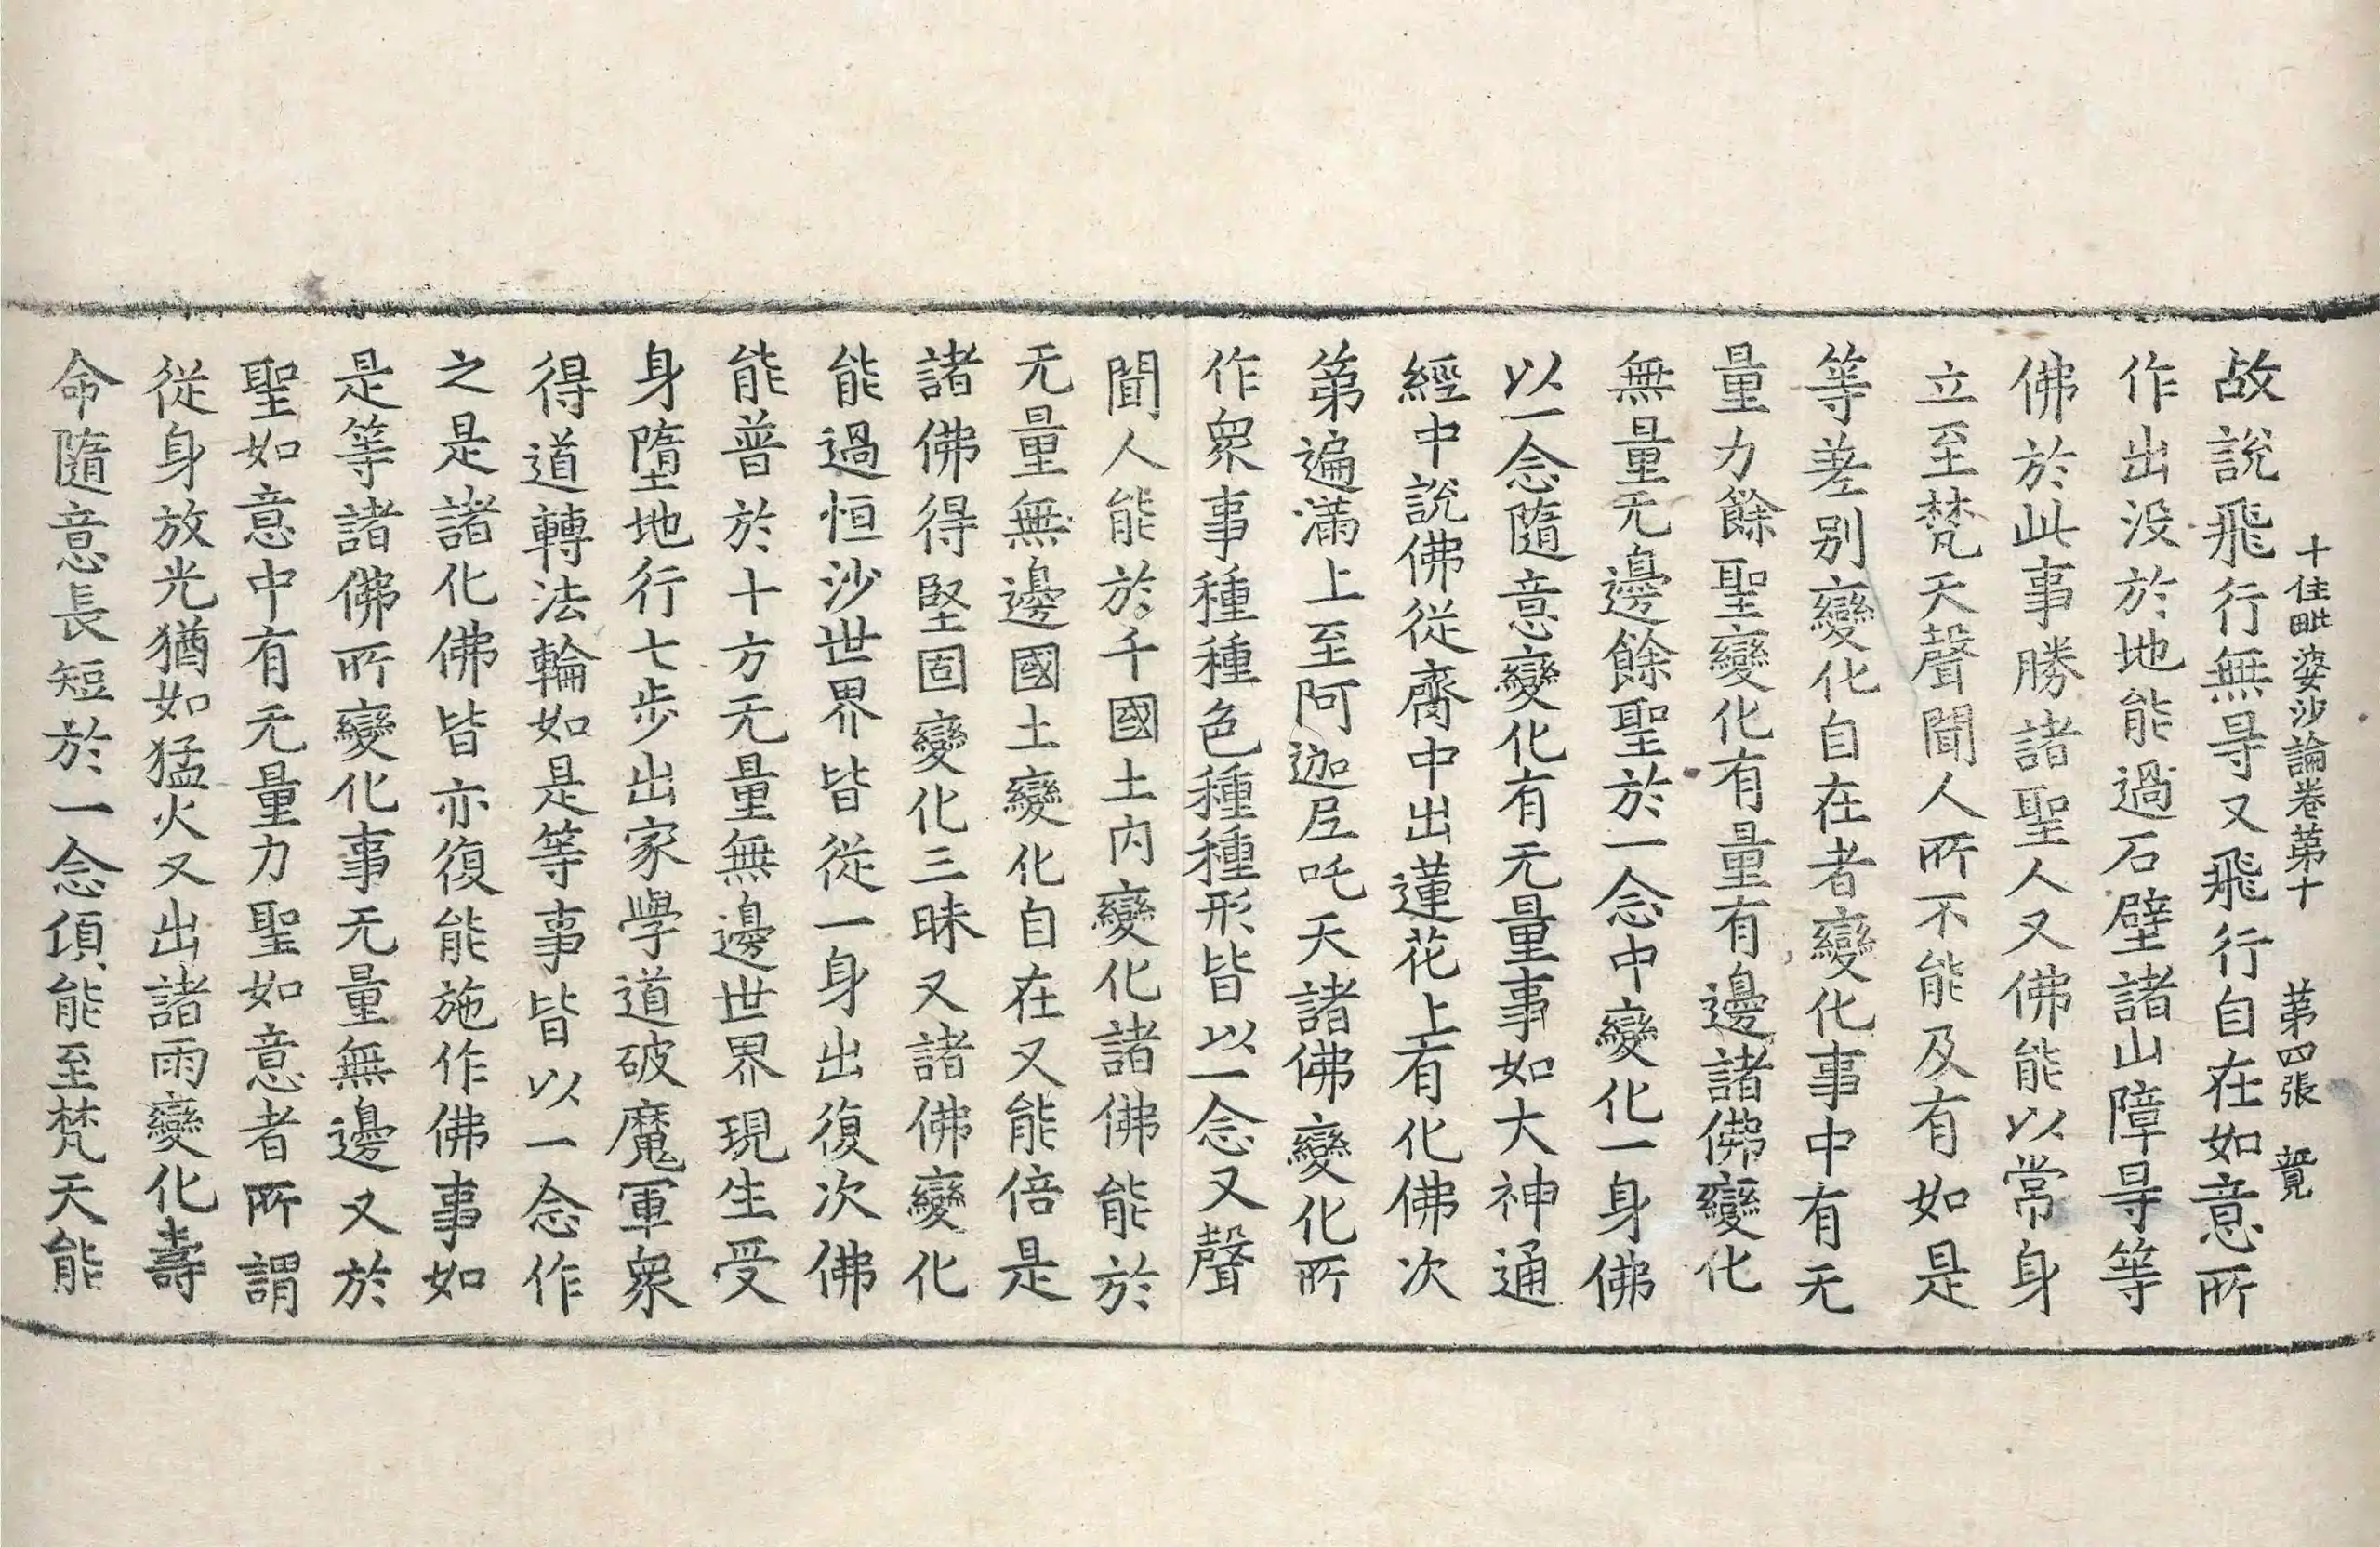 十住毗婆沙論卷第十　第四張　覽
故說飛行無㝵又飛行自在如意所
作出没於地能過石壁諸山障㝵等
佛於此事勝諸聖人又佛能以常身
立至梵天聲聞人所不能及有如是
等差别變化自在者變化事中有无
量力餘聖變化有量有邊諸佛變化
無量无邊餘聖於一念中變化一身佛
以一念隨意變化有无量事如大神通
經中說佛從齊中出蓮花上有化佛次
第遍滿上至阿迦尼吒天諸佛變化所
作衆事種種色種種形皆以一念又聲
聞人能於千國土内變化諸佛能於
无量無邊國土變化自在又能倍是
諸佛得堅固變化三昧又諸佛變化
能過恒沙世界皆從一身出復次佛
能普於十方无量無邊世界現生受
身墮地行七步出家學道破魔軍衆
得道轉法輪如是等事皆以一念作
之是諸化佛皆亦復能施作佛事如
是等諸佛所變化事无量無邊又於
聖如意中有无量力聖如意者所謂
從身放光猶如猛火又出諸雨變化壽
命隨意長短於一念頃能至梵天能